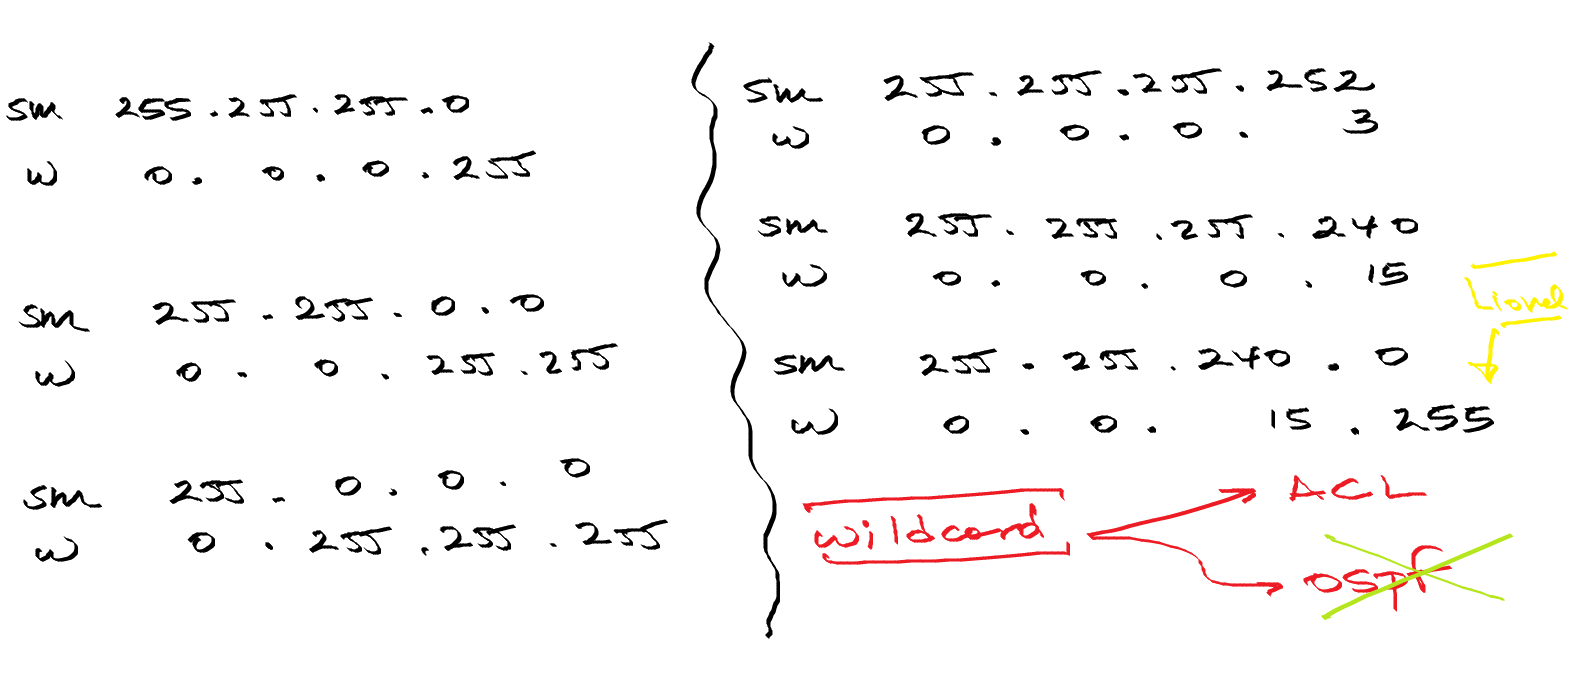 sm 255.255.255.0
w 0.0.0.255
sm 255.255.0.0
w 0.0.255.255
sm 255.0.0.0
w 0.255.255.255
sm 255.255.255.252
w 0.0.0.3
sm 255.255.255.240
w 0.0.0.15
Lionel
sm 255.255.240.0
w 0.0.15.255
wildcard
ACL
OSPF